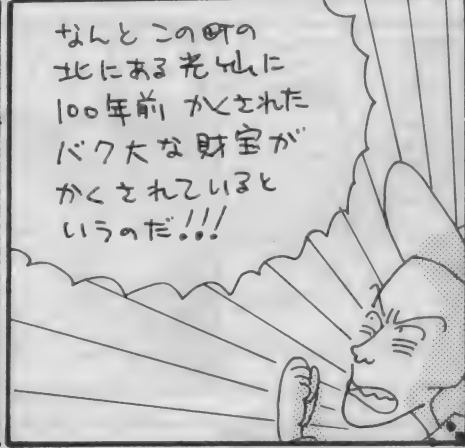 なんと この町の
北にある光仙に
100年前 かくされた
バク大な財宝が
かくされていると
いうのだ!!!